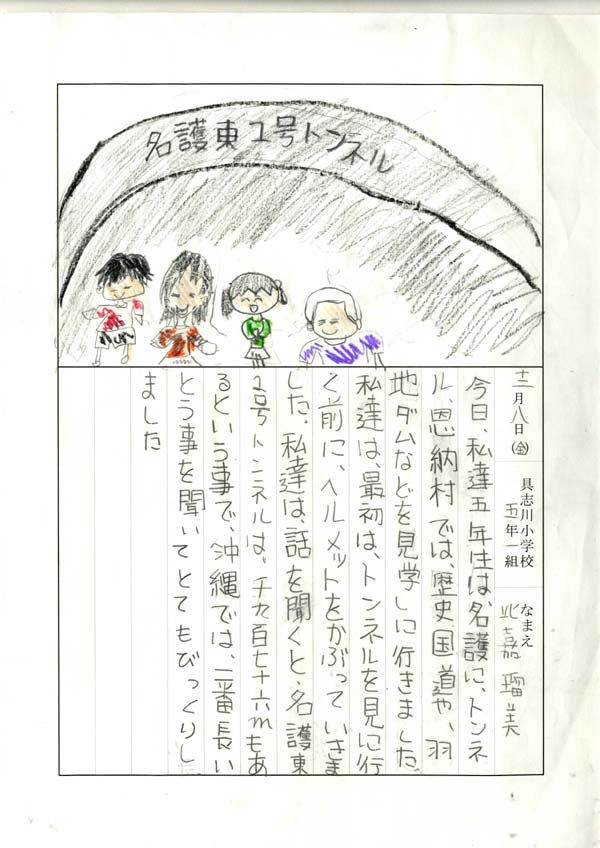 名護東1号トンネル
十二月八日(金)
具志川小学校
五年一組
なまえ
比嘉瑠美
今日、私達五年生は名護に、トンネ
ル、恩納村では、歴史国道や、羽
地ダムなどを見学しに行きました。
私達は、最初は、トンネルを見に行
く前に、ヘルメットをかぶっていきま
した。私達は、話を聞くと、名護東
1号トンネルは、千九百七十六mもあ
るという事で、沖縄では、一番長い
とう事を聞いてとてもびっくりし
ました